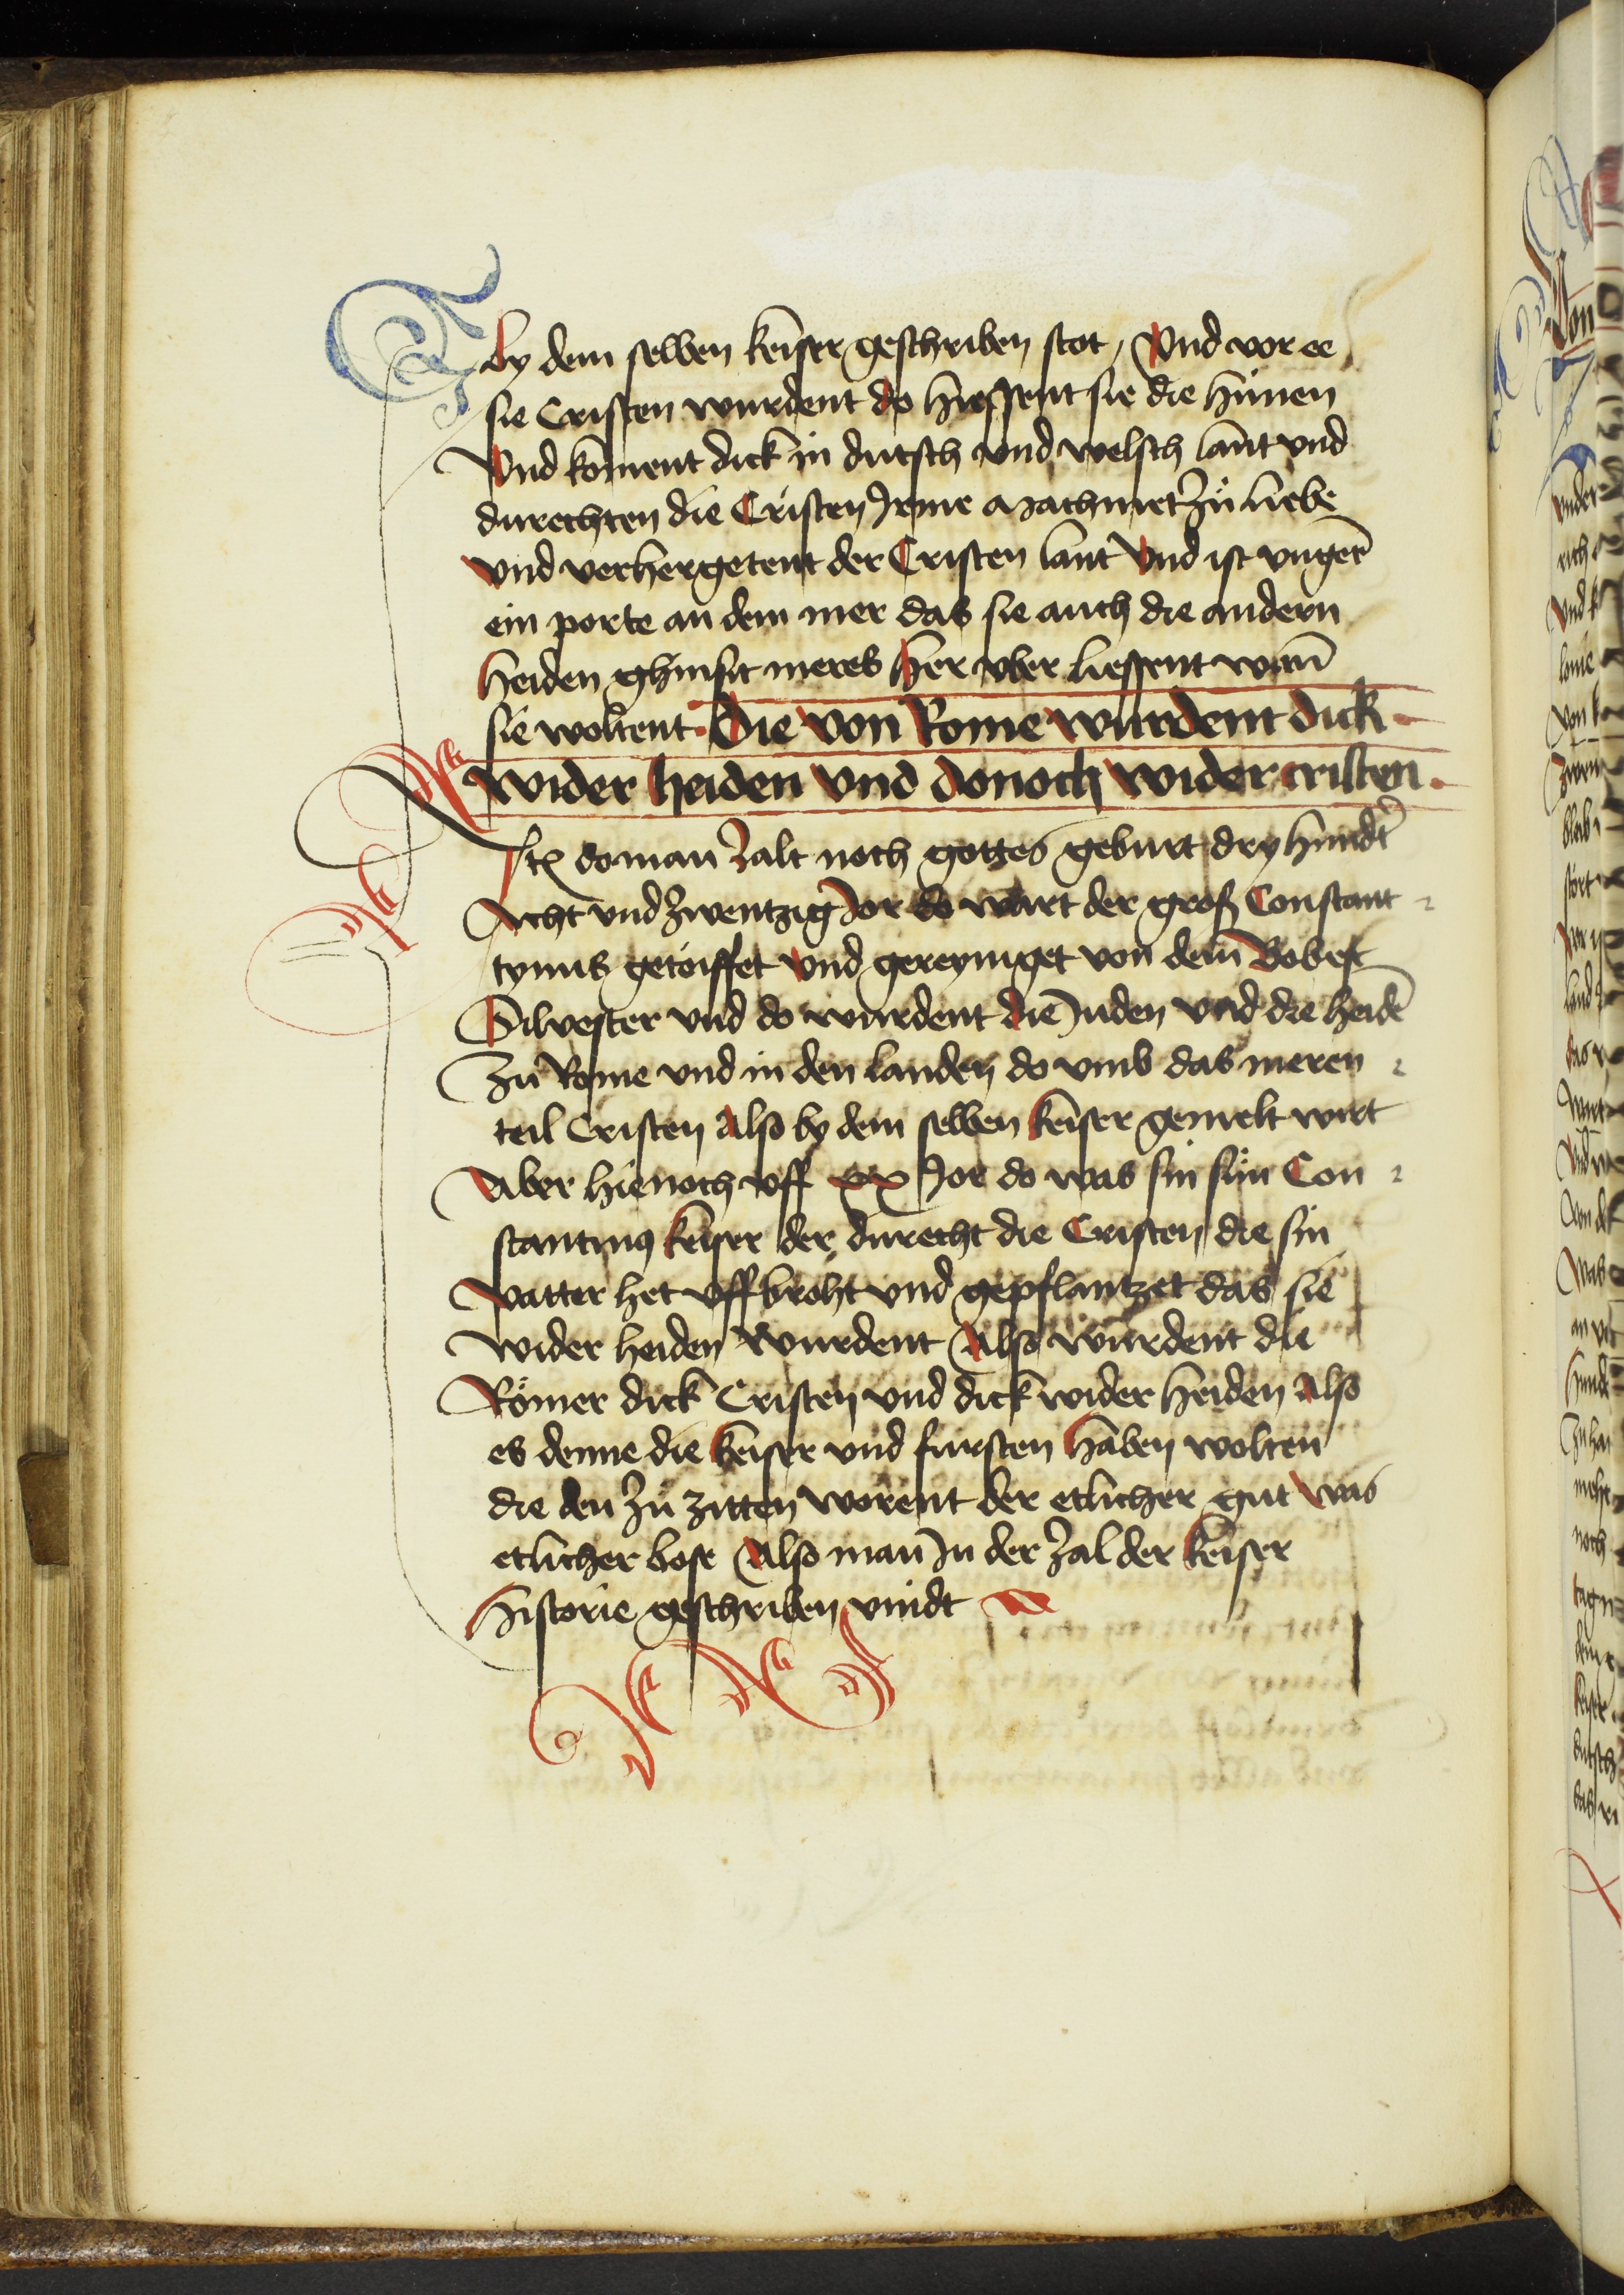 by dem selben keiser geschriben stot / Vnd vor ee
sie Cristen wurdent do hiessent sie die hünen
Vnd koment dick in dutsch vnd welsch lant vnd
durechten die Cristen Irme machmet zů liebe
vnd verhergetent der Cristen lant Vnd ist vngerē
ein porte an dem mer das sie auch die andern
heiden ghinsit meres her vber liessent wān
sie woltent · Die von Rome wurdent dick
wider heiden vnd donoch wider cristen ·
Itē do man zalt noch gottes geburt dry hundt̄
Acht vnd zwentzig Jor do wart der groß Constant
tynus getöiffet vnd gereyniget von dem Bobest
Silvester vnd do wurdent die Juden vnd die heidē
Zu Rome vnd in den landen do vmb das meren
teil Cristen Also by dem selben keiser gemelt wirt
Aber hienoch vff xx Jor do was sin sün Con
stantinꝰ keiser der durecht die Cristen die sin
vatter het vffbroht vnd gepflantzet das sie
wider heiden wurdent Also wurdent die
Römer dick Cristen vnd dick wider heiden Also
es denne die keiser vnd fursten haben wolten
die den zů zitten worent der etlicher gut was
etlicher bose Also man In der zal der keiser
historie geschriben vindt